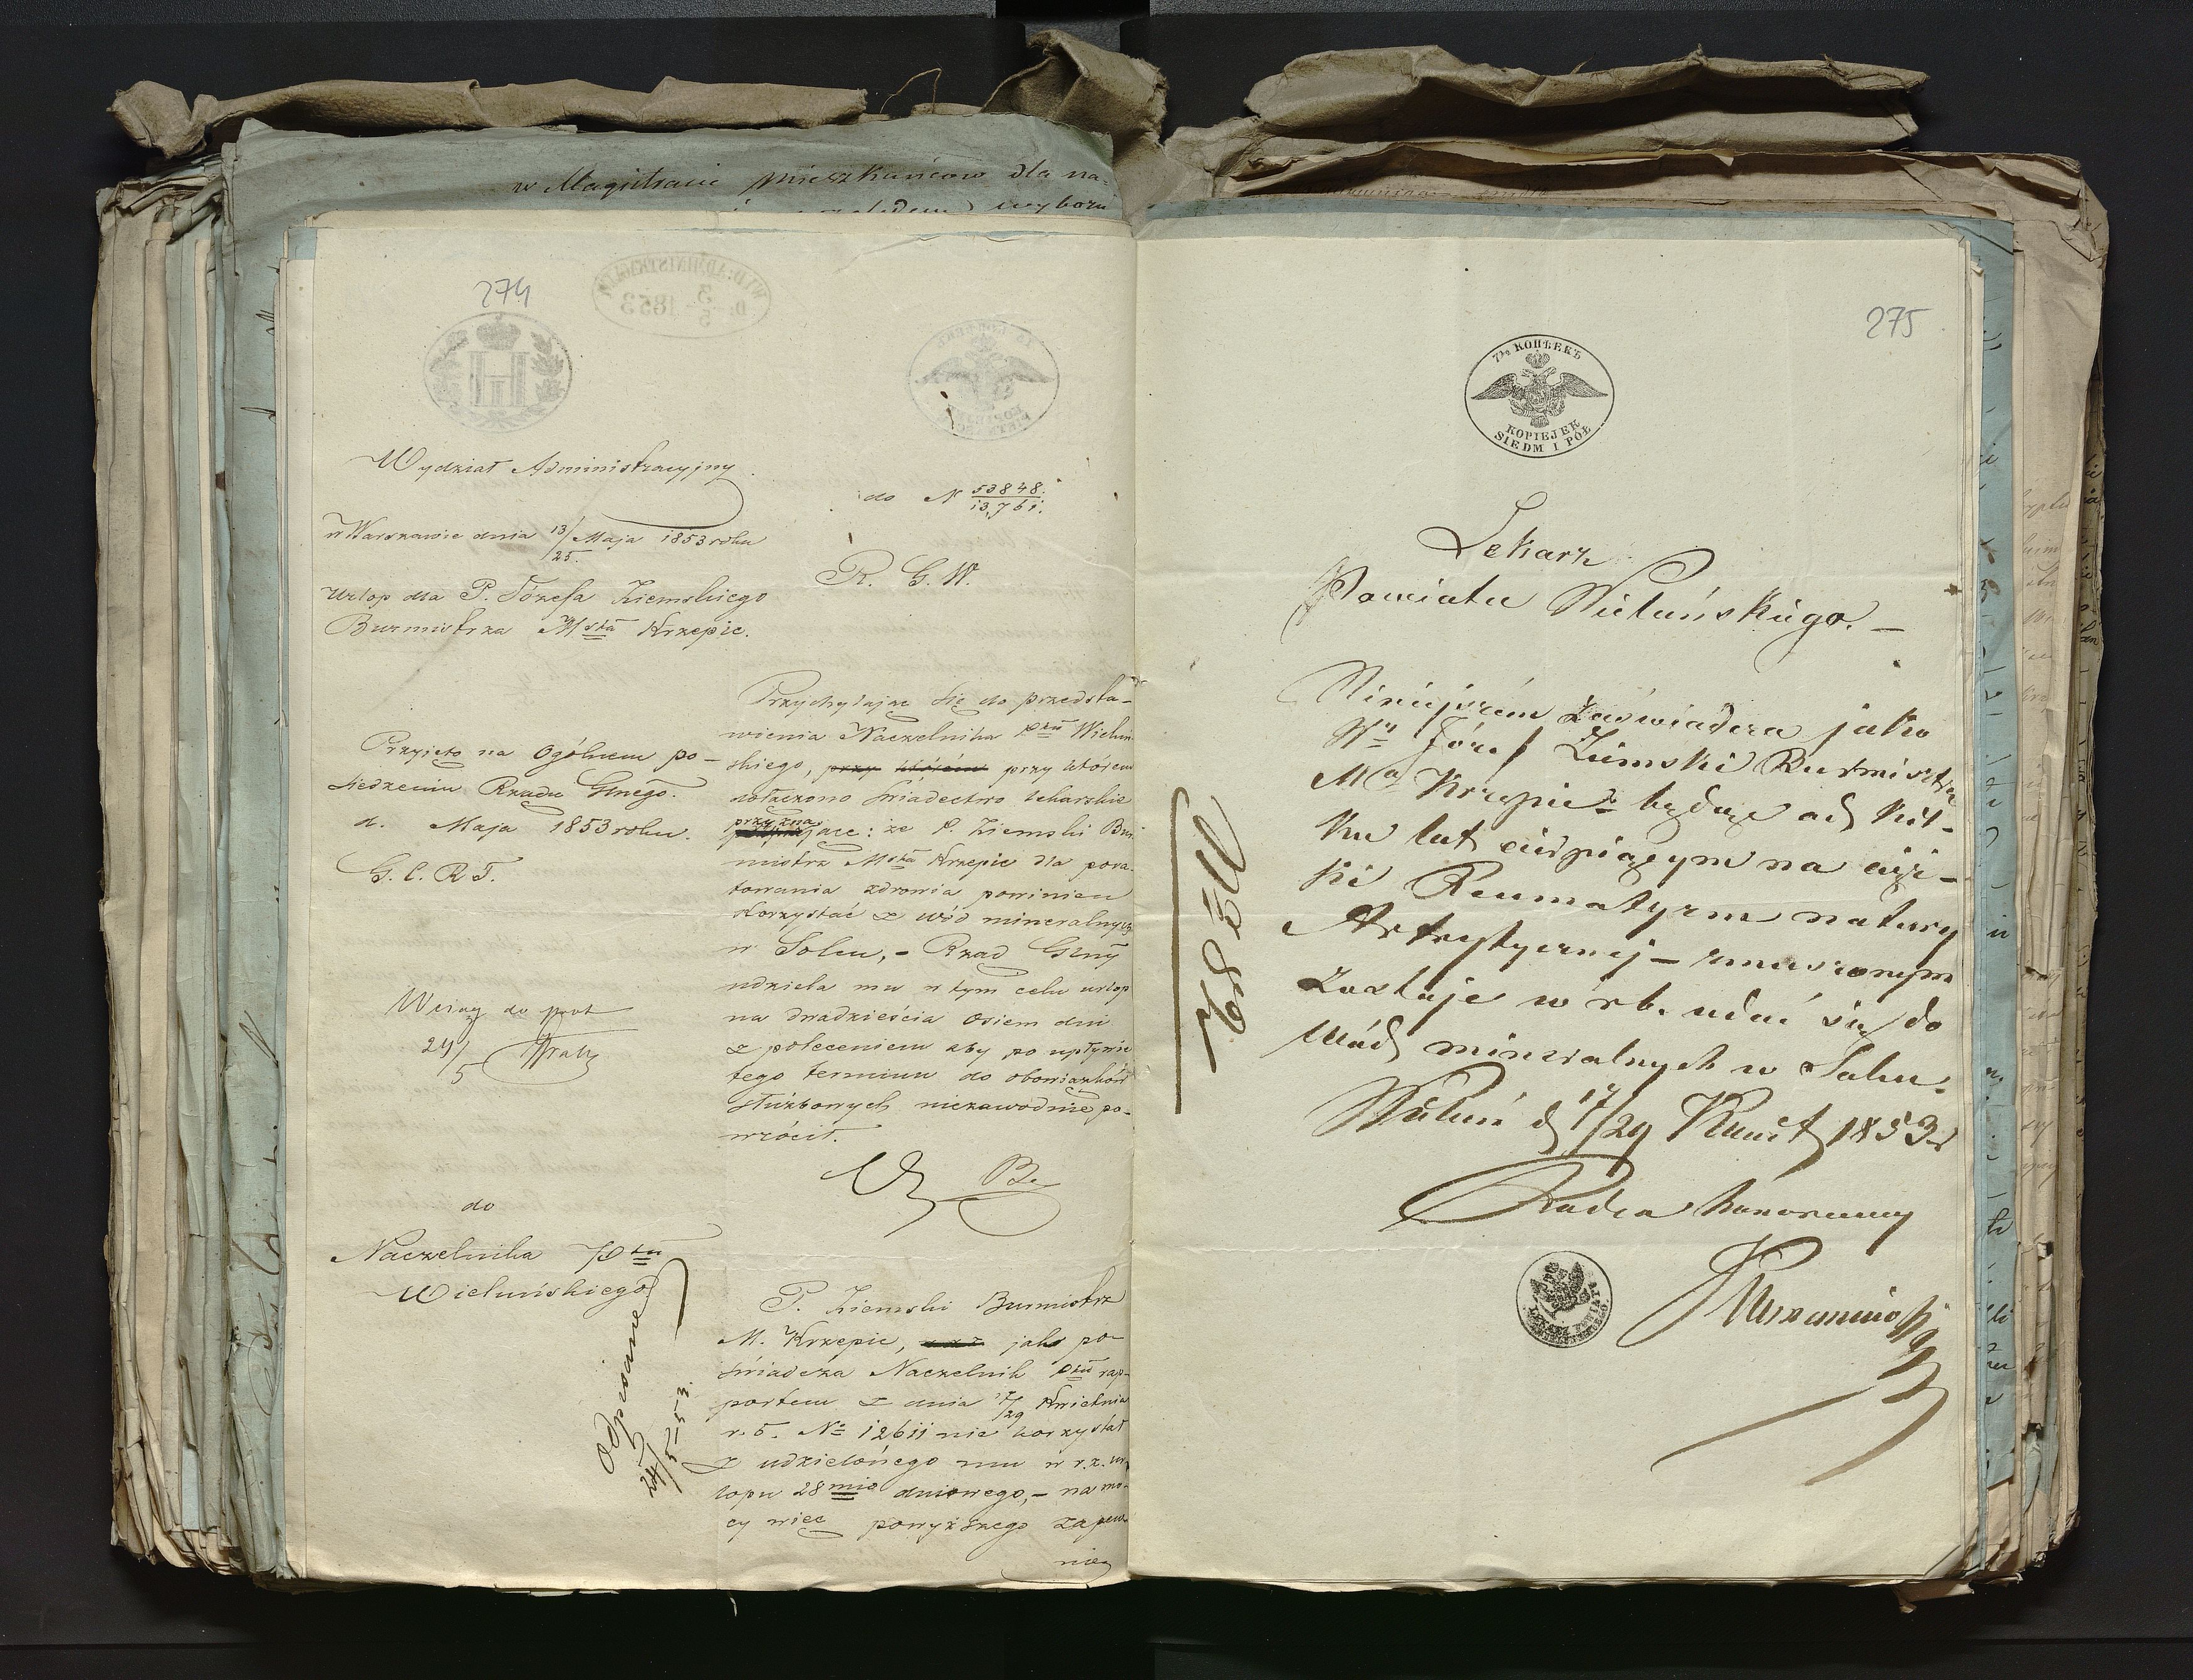 w Magistracie mieszkańców dla na=
wyboru
274
Wydział Administracyjny
do N 53848/13,761.
w Warszawie dnia 13/25 Maja 1853 roku
R. G. W.
Urlop dla P. Józefa Ziemskiego
Burmistrza Msta Krzepic.
Przyięto na Ogólnem po-
siedzeniu Rządu Gbnego.
d. Maja 1853 roku.
G. C. R. T.
do prot
24/5
do
Naczelnika Ptu
Wieluńskiego
Odpisane
24/5-53.
Przychylając się do przedsta-
wienia Naczelnika Ptu Wieluń
skiego, przy którem przy którem
dołączono świadectwo lekarskie
przyznające: że P. Ziemski Bur
mistrz Msta Krzepic dla pora-
towania zdrowia powinien
korzystać z wód mineralnych
w Solcu, - Rząd Gbny
udziela mu w tym celu urlop
na dwadzieścia osiem dni
z poleceniem aby po upływie
tego terminu do obowiązków
służbowych niezawodnie po-
wrócił.
P. Ziemski Burmistrz
M. Krzepic, jak po-
świadcza Naczelnik Ptu rap-
portem z dnia 17/29 Kwietnia
r. b. No 12611 nie korzystał
z udzielonego mu w r. z. ur-
lopu 28mio dniowego, - na mo-
cy więc powyższego zapew-
nie
275
7½ КОПѢЕКЪ
KOPIEJEK
SIEDM I PÓŁ
Lekarz
Powiatu Wieluńskiego. -
Niniejszém zaświadcza jako
Wy Józef Ziemski Burmistrz
Ma Krzepic będąc od kil-
ku lat cierpiącym na cięż-
ki Reumatyzm natury
Artrytycznej - zmuszonym
zostaje w r b. udać się do
Wód mineralnych w Solcu.
Wieluń d 17/29 Kwiet 1853 r
Radca honorowy